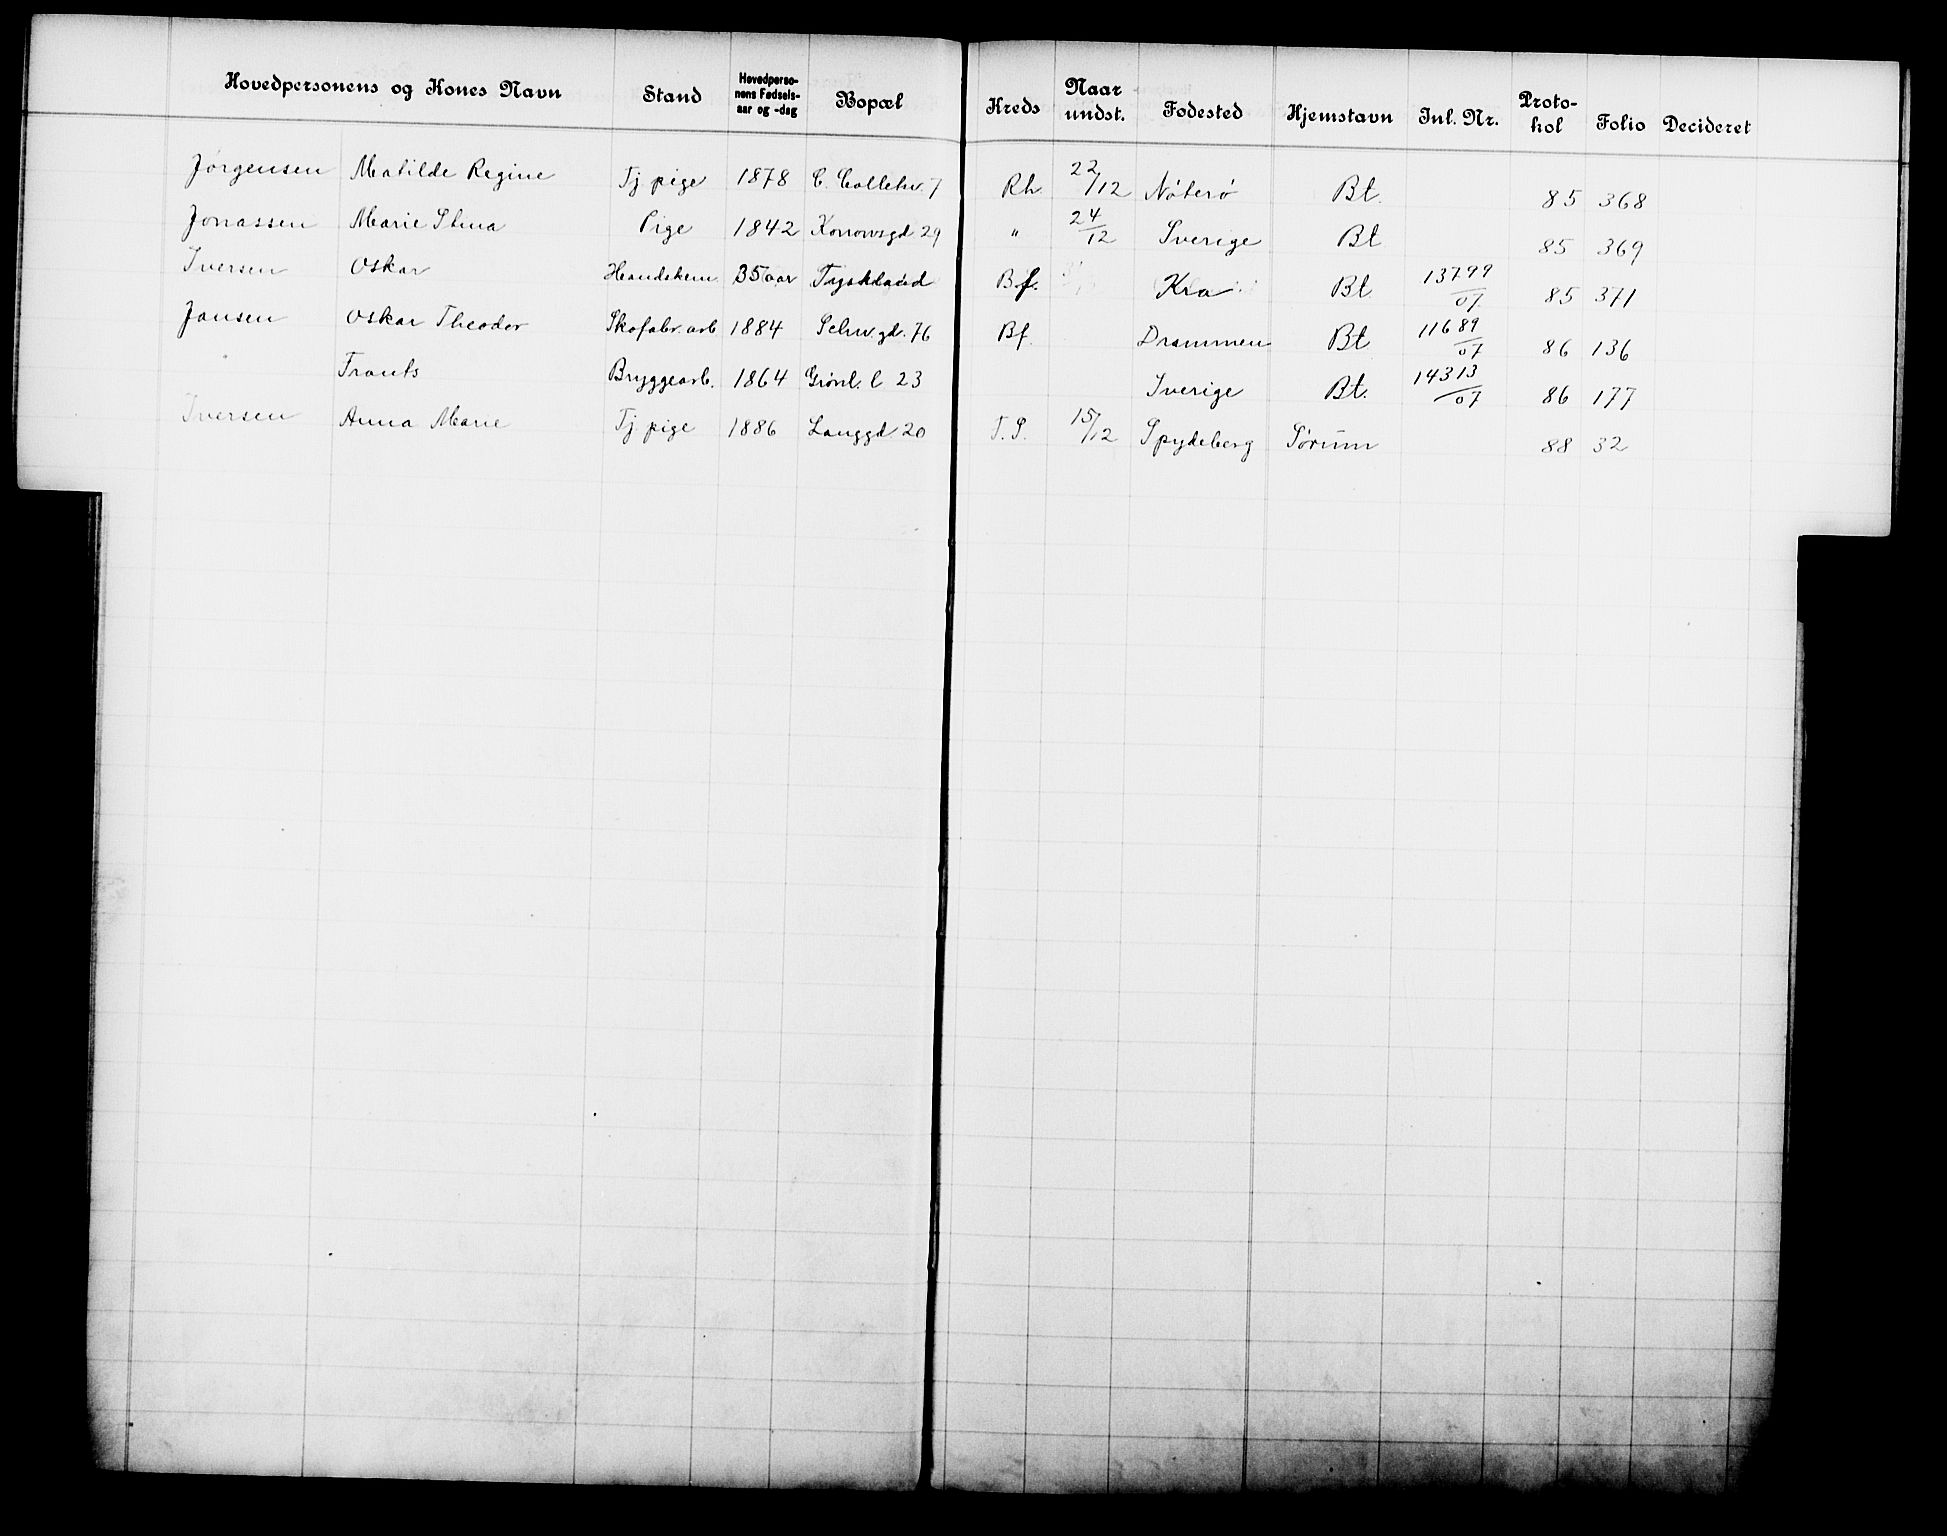 Hovedpersonens og Kones Navn Stand Hovedpersonens Fødselsaar og -dag Bopæl Kreds Naar undst. Fødested Hjemstavn Jnl. Nr. Protokol Folio Decideret
Jørgensen Matilde Regine Tj pige 1878 C. Colletsv. 7 Rh. 22/12 Nøterø Bt. 85 368
Jonassen Marie Stina Pige 1842 Konowsgd 29 " 24/12 Sverige Bt 85 369
Iversen Oskar Handskem 35 aar Tyskland Bf. Kra Bt 13799/07 85 371
Jansen Oskar Theodor Skofabr. arb 1884 Schw. gd. 76 Bf. Drammen Bt 11689/07 86 136
" Frants Bryggearb. 1864 Grønl. l 23 Sverige Bt. 14313/07 86 177
Iversen Anna Marie Tj pige 1886 Langgd 20 T. S. 15/12 Spydeberg Sørum 88 32